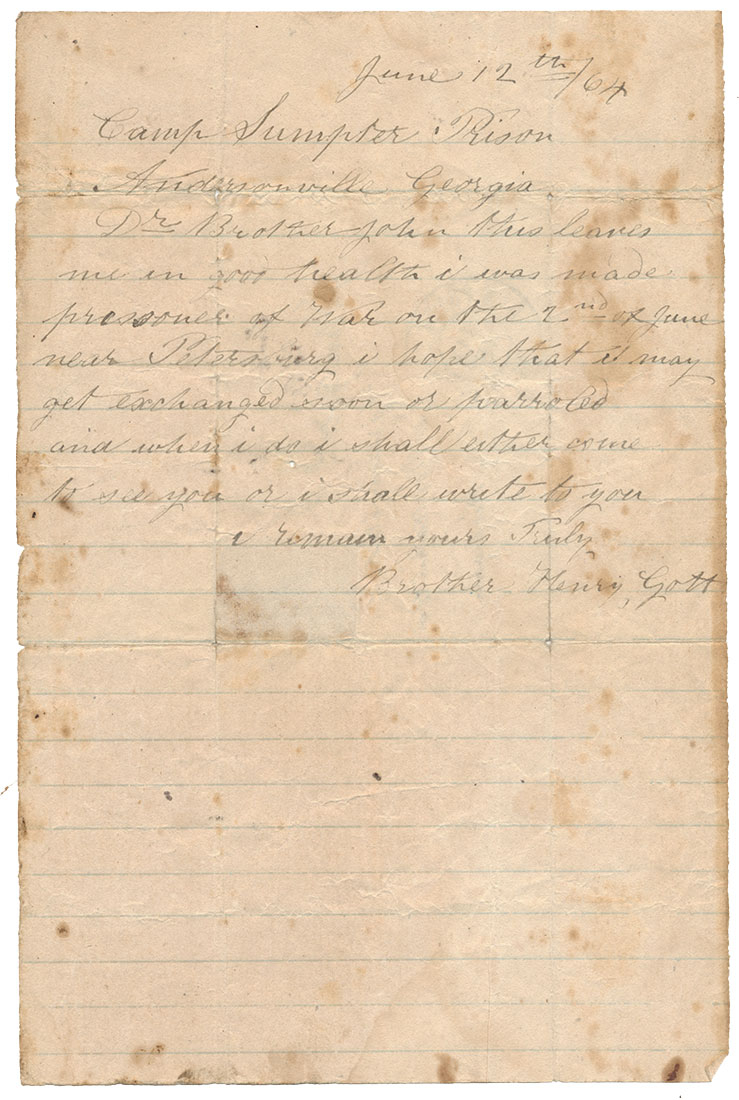 June 12th/64
Camp Sumpter Prison
Andersonville Georgia
Dr Brother John this leaves
me in good health i was made
prosoner of War on the 2nd of June
near Petersburg i hope that i may
get exchanged soon or parroled
and when i do i shall either come
to see you or i shall write to you
i remain yours Truly
Brother Henry Gott